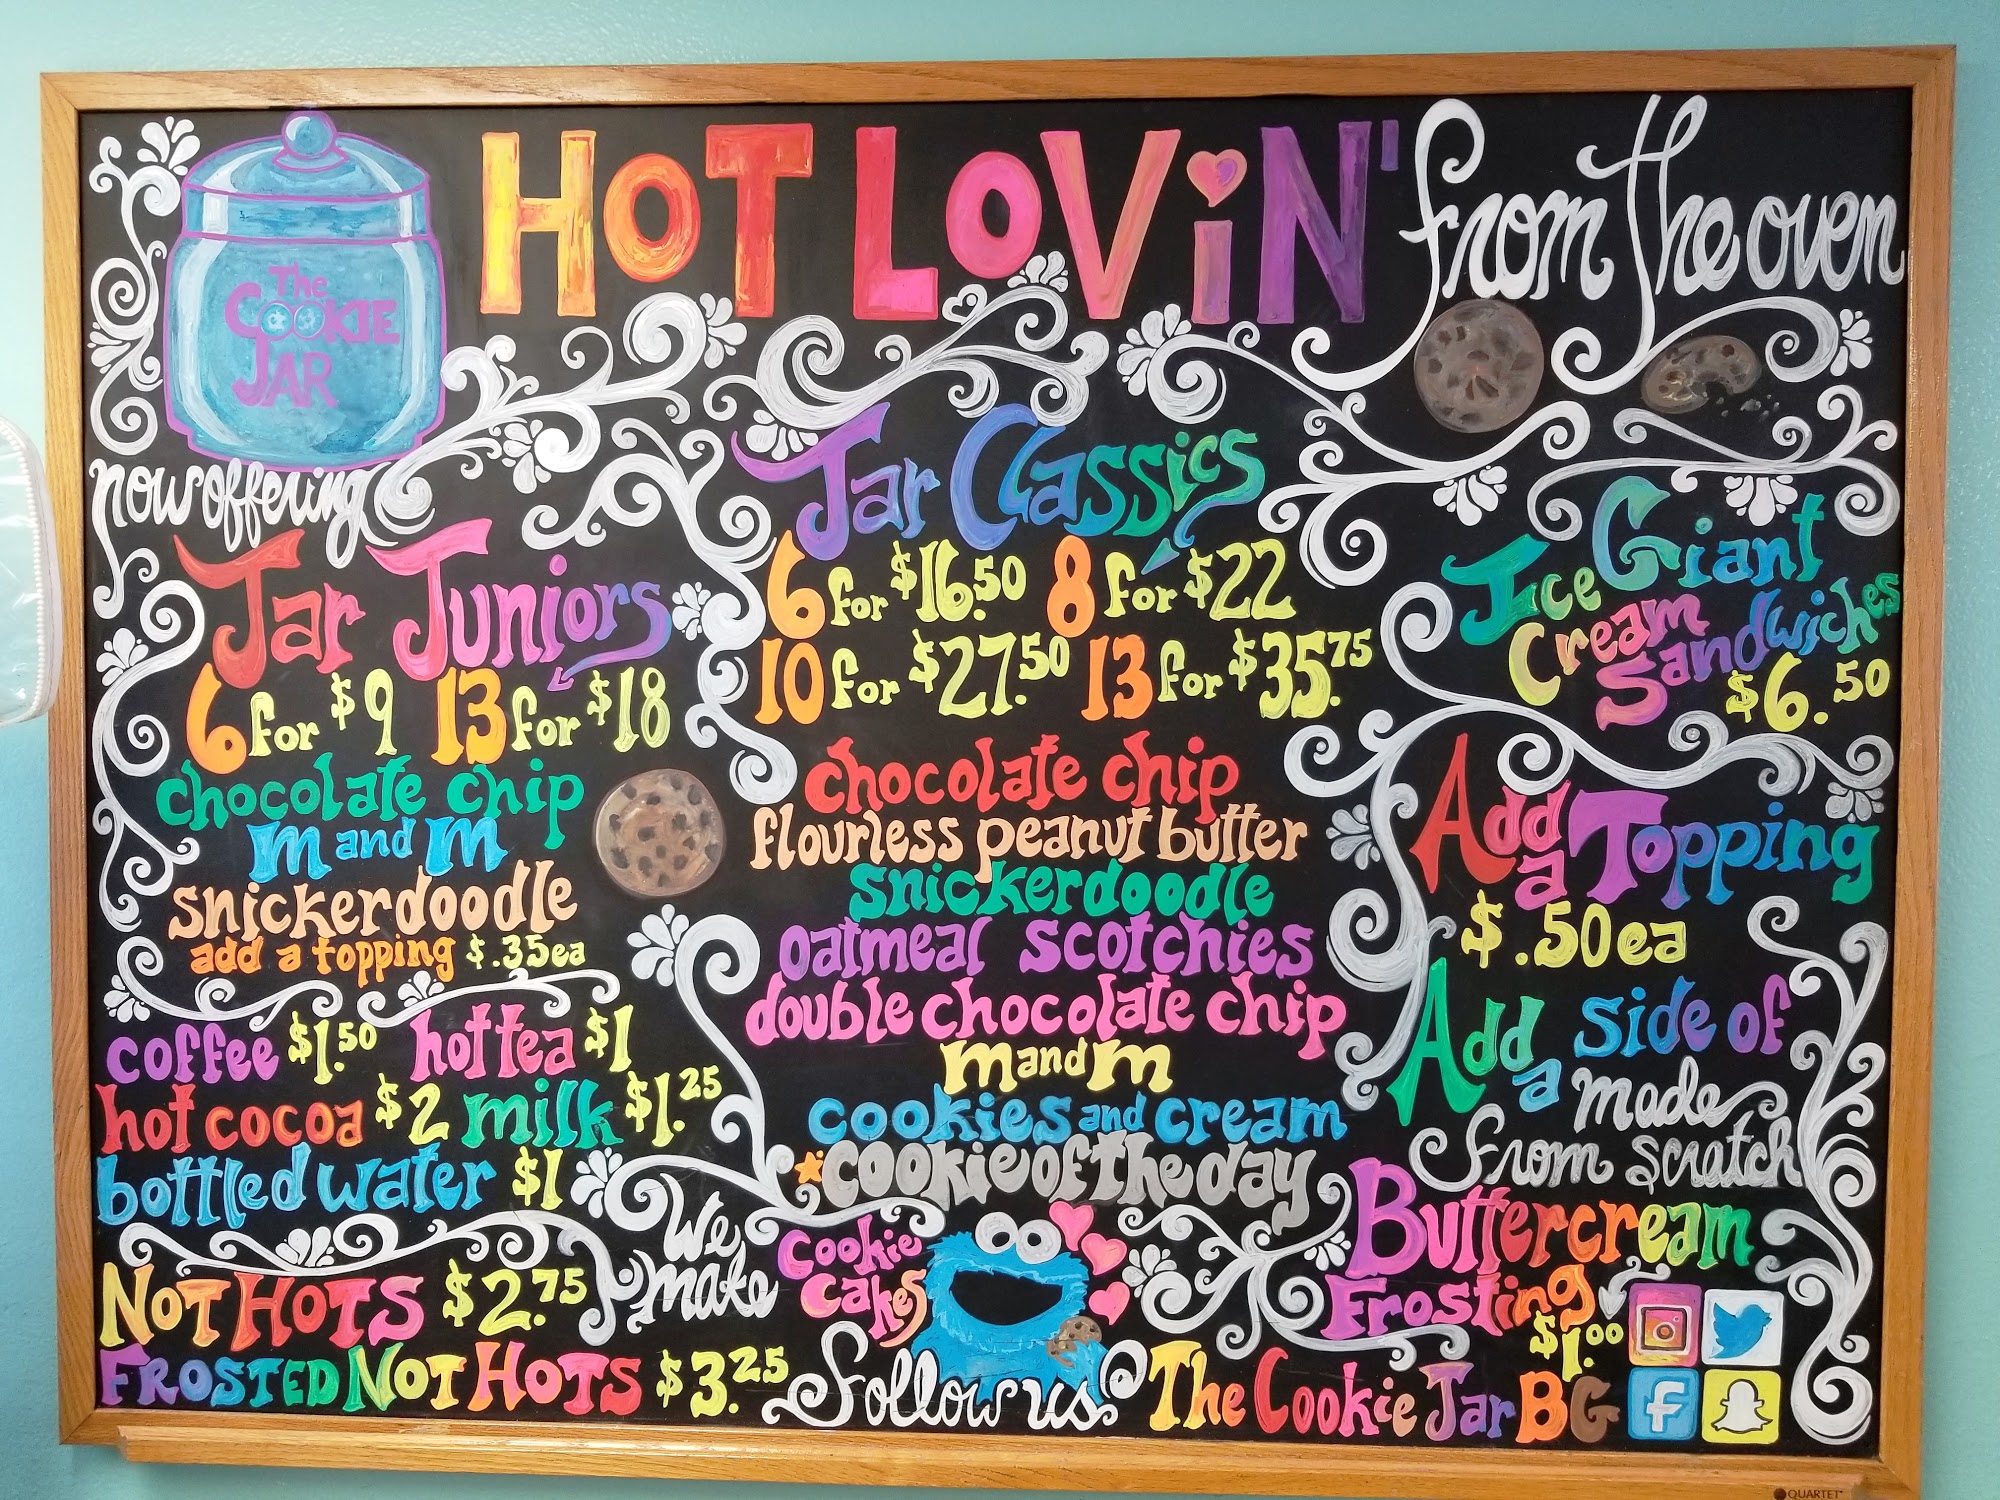 The
COOKIE
JAR
HOT LOViN' from the oven
now offering
Jar Juniors
6 for $9 13 for $18
chocolate chip
m and m
snickerdoodle
add a topping $.35ea
coffee $1.50 hot tea $1
hot cocoa $2 milk $1.25
bottled water $1
NOT HOTS $2.75
FROSTED NOT HOTS $3.25
Jar Classics
6 for $16.50 8 for $22
10 for $27.50 13 for $35.75
chocolate chip
flourless peanut butter
snickerdoodle
oatmeal scotchies
double chocolate chip
m and m
cookies and cream
cookie of the day
We make
Cookie Cakes
Giant
Ice Cream
Sandwiches
$6.50
Add a Topping
$.50ea
Add a side of
made
from scratch
Buttercream
Frosting
$1.00
Follow us The Cookie Jar BG
f
QUARTET